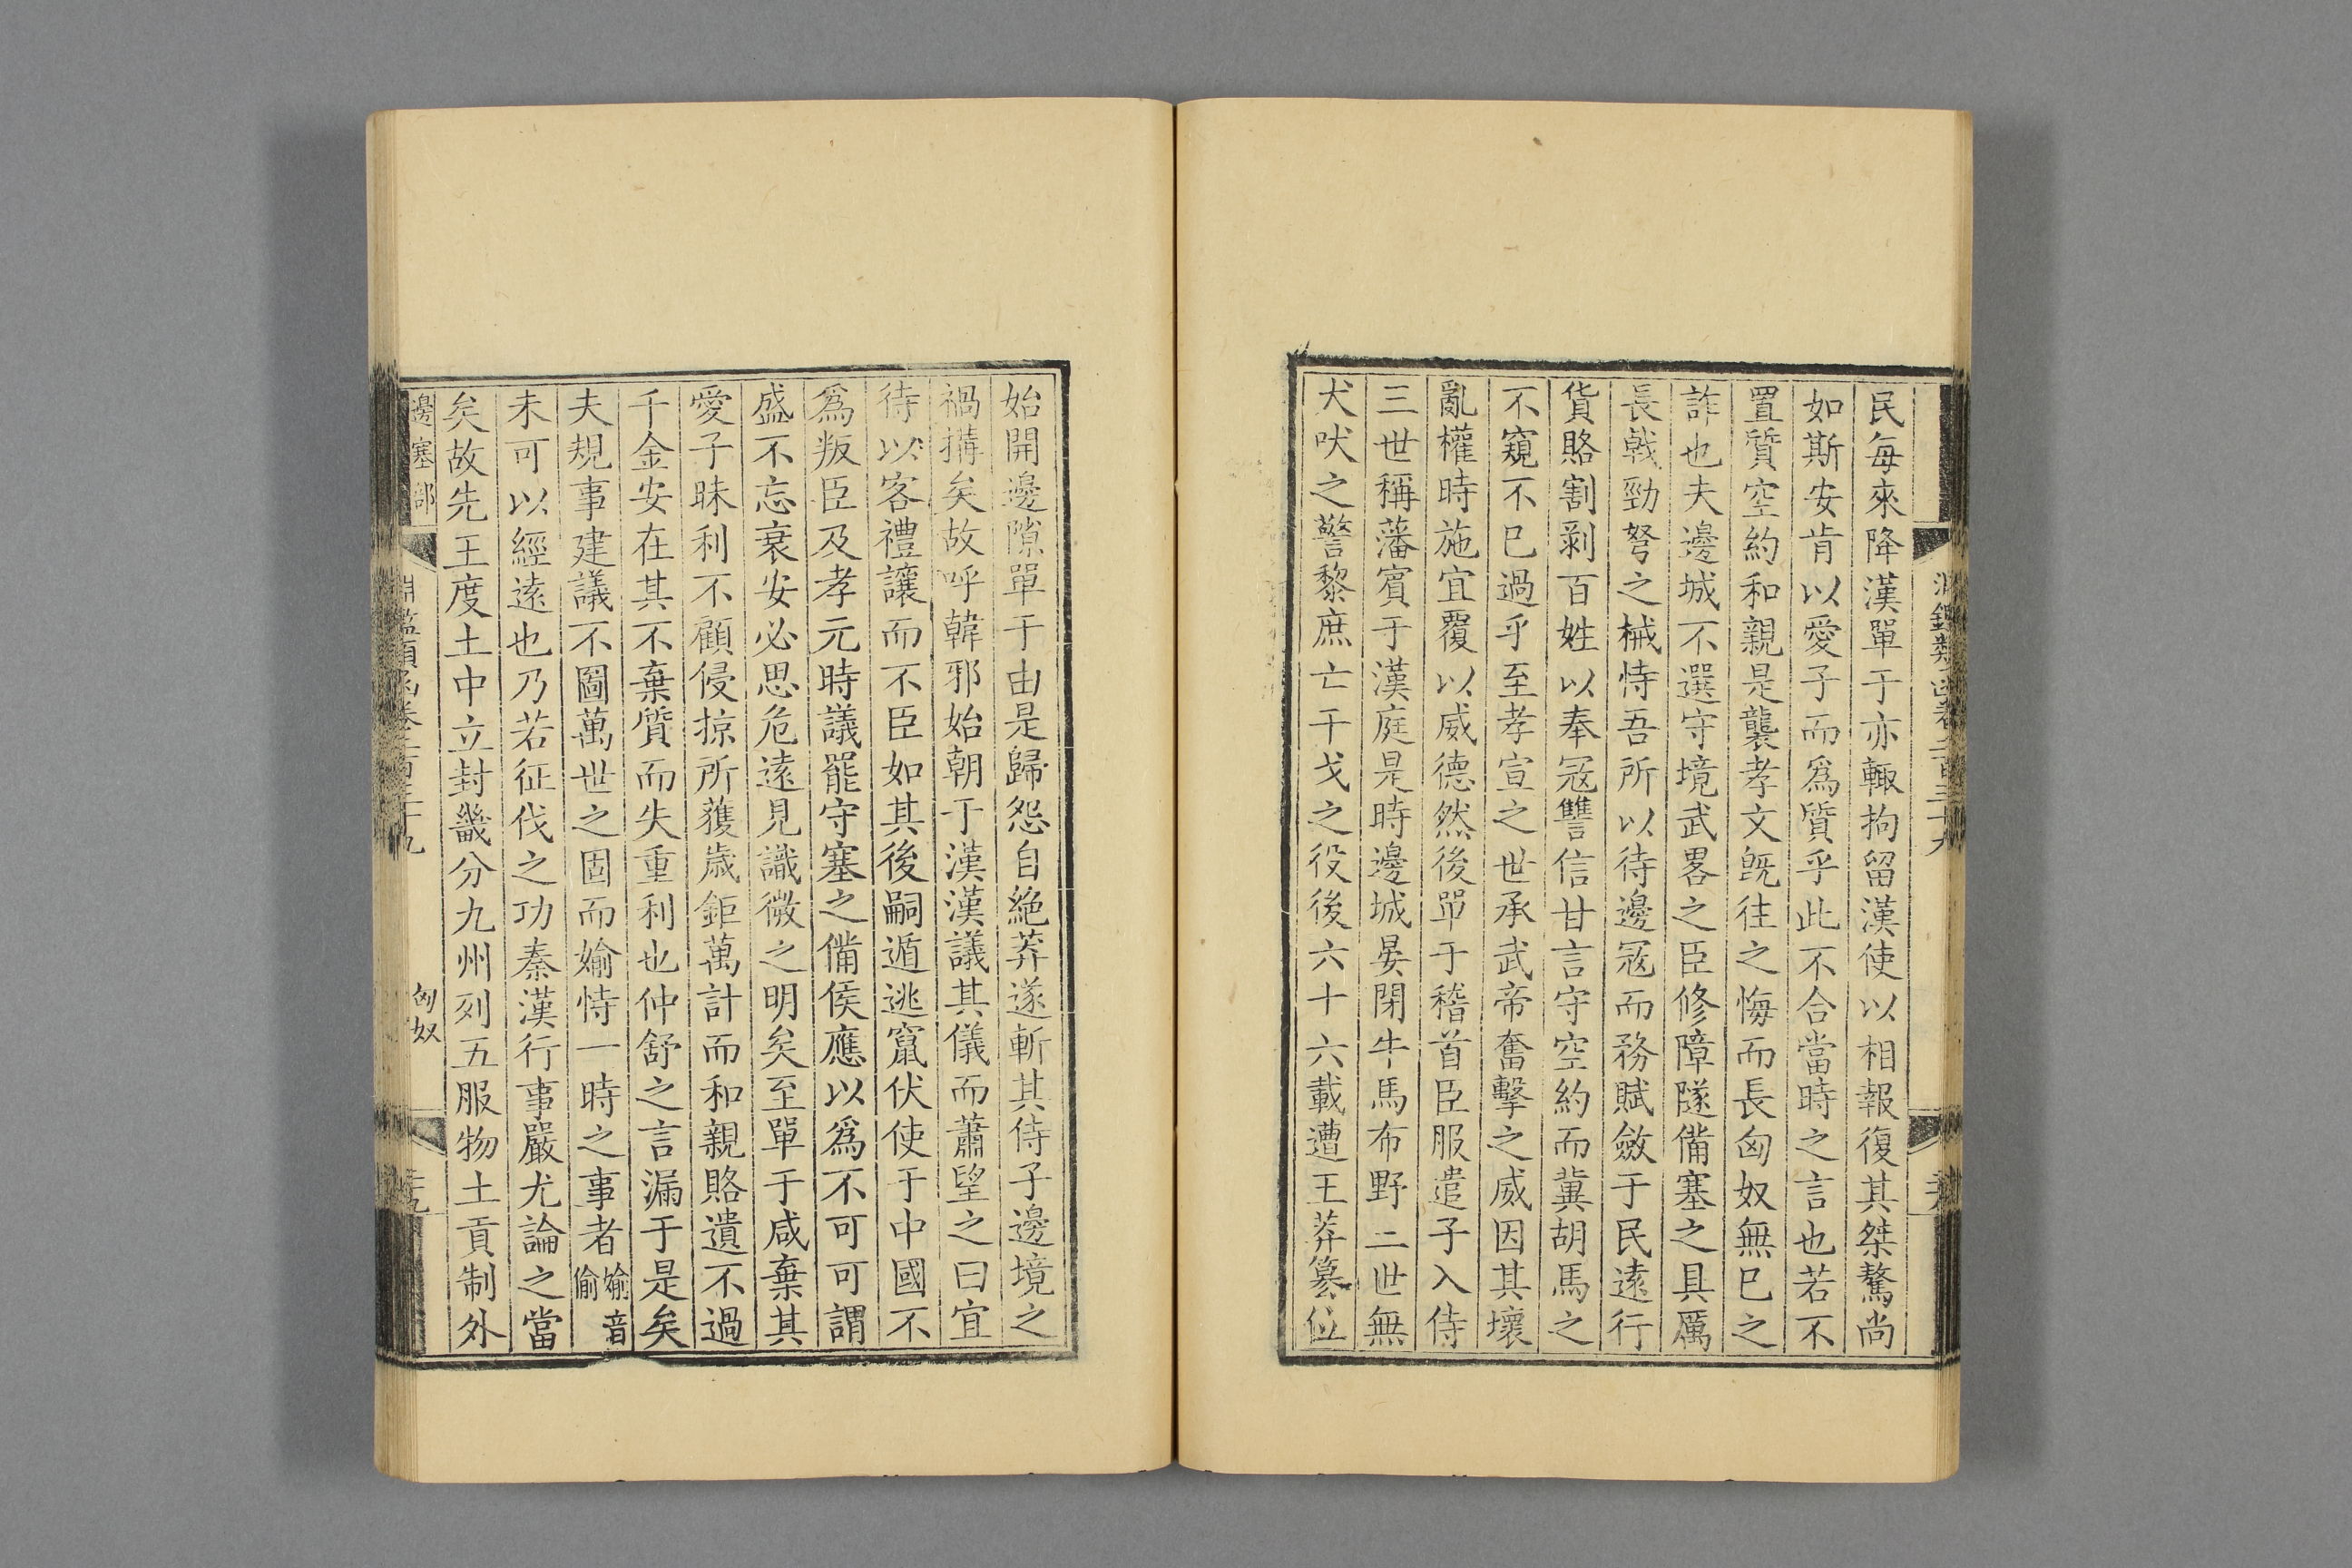 民每來降漢單于亦輙拘留漢使以相報復其桀驁尚
如斯安肯以愛子而爲質乎此不合當時之言也若不
置質空約和親是襲孝文旣往之悔而長匈奴無已之
詐也夫邊城不選守境武畧之臣修障隧備塞之具厲
長戟勁弩之械恃吾所以待邊寇而務賦斂于民遠行
貨賂割剝百姓以奉寇讐信甘言守空約而冀胡馬之
不窺不已過乎至孝宣之世承武帝奮擊之威因其壞
亂權時施宜覆以威德然後單于稽首臣服遣子入侍
三世稱藩賓于漢庭是時邊城晏閉牛馬布野二世無
犬吠之警黎庶亡干戈之役後六十六載遭王莽篡位
始開邊隙單于由是歸怨自絶莽遂斬其侍子邊境之
禍搆矣故呼韓邪始朝于漢漢議其儀而蕭望之曰宜
待以客禮讓而不臣如其後嗣遁逃竄伏使于中國不
爲叛臣及孝元時議罷守塞之備侯應以爲不可可謂
盛不忘衰安必思危遠見識微之明矣至單于咸棄其
愛子昧利不顧侵掠所獲歳鉅萬計而和親賂遺不過
千金安在其不棄質而失重利也仲舒之言漏于是矣
夫規事建議不圖萬世之固而媮恃一時之事者媮音偷
未可以經遠也乃若征伐之功秦漢行事嚴尤論之當
矣故先王度土中立封畿分九州列五服物土貢制外
邊塞部 淵鑑類函卷二百三十九 匈奴